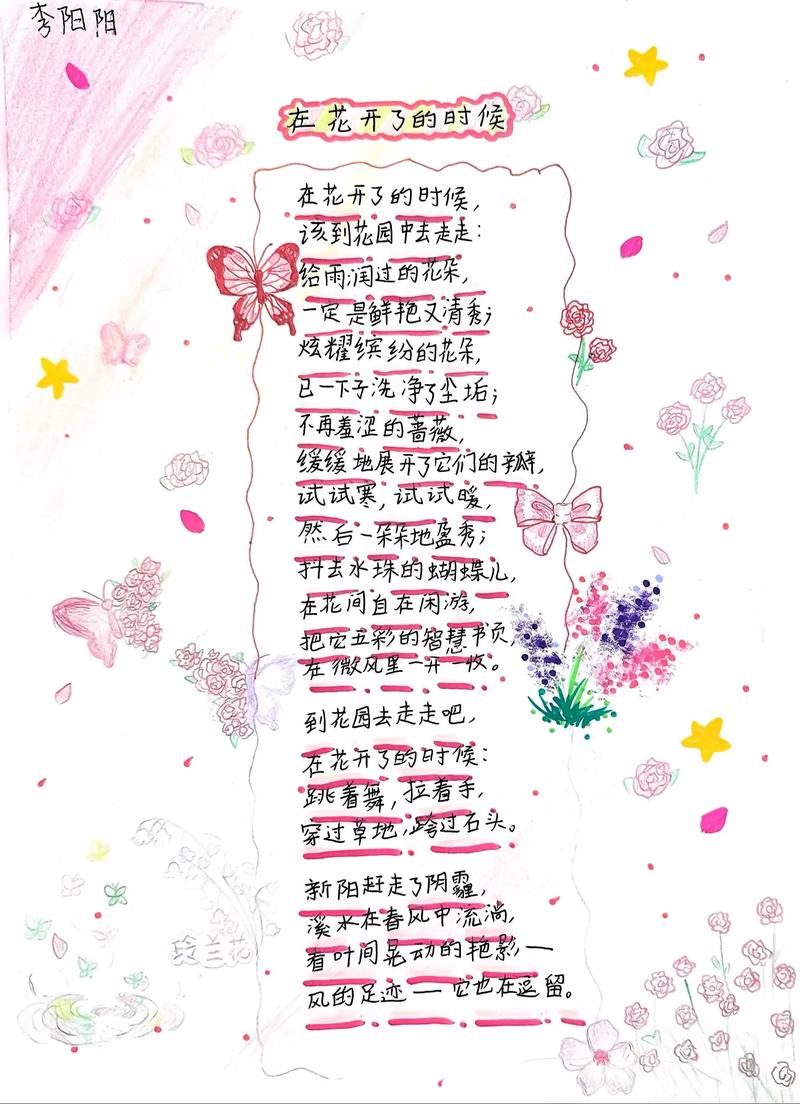 李阳阳
在花开了的时候
在花开了的时候，
该到花园中去走走：
给雨润过的花朵，
一定是鲜艳又清秀；
炫耀缤纷的花朵，
已一下子洗净了尘垢；
不再羞涩的蔷薇，
缓缓地展开了它们的瓣，
试试寒，试试暖，
然后一朵朵地盈秀；
抖去水珠的蝴蝶儿，
在花间自在闲游，
把它五彩的智慧书页，
在微风里一开一收。
到花园去走走吧，
在花开了的时候：
跳着舞，拉着手，
穿过草地，跨过石头。
新阳赶走了阴霾，
溪水在春风中流淌，
看叶间晃动的艳影——
风的足迹——它也在逗留。
玲兰花